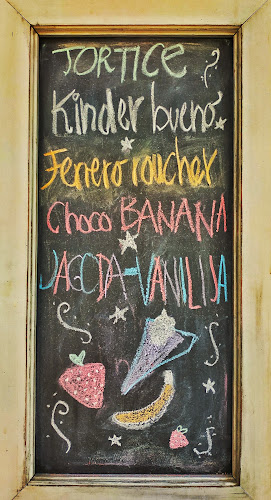 TORTICE
Kinder bueno
Ferrero roucher
Choco BANANA
JAGODA-VANILIJA